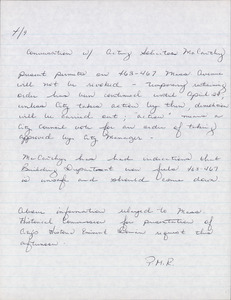 4/8
Conversation w/ Acting Solicitor McCarthy
present permits on 463-467 Mass Avenue
will not be revoked - temporary retaining
order has been continued until April 28,
unless City takes action by then, decision
will be carried out; "action" means a
City Council vote for an order of taking
approved by City Manager -
McCarthy has had indications that
Building Department now feels 463-467
is unsafe and should come down
Above information relayed to Mass.
Historical Commission for presentation of
request this
afternoon.
P.M.R.